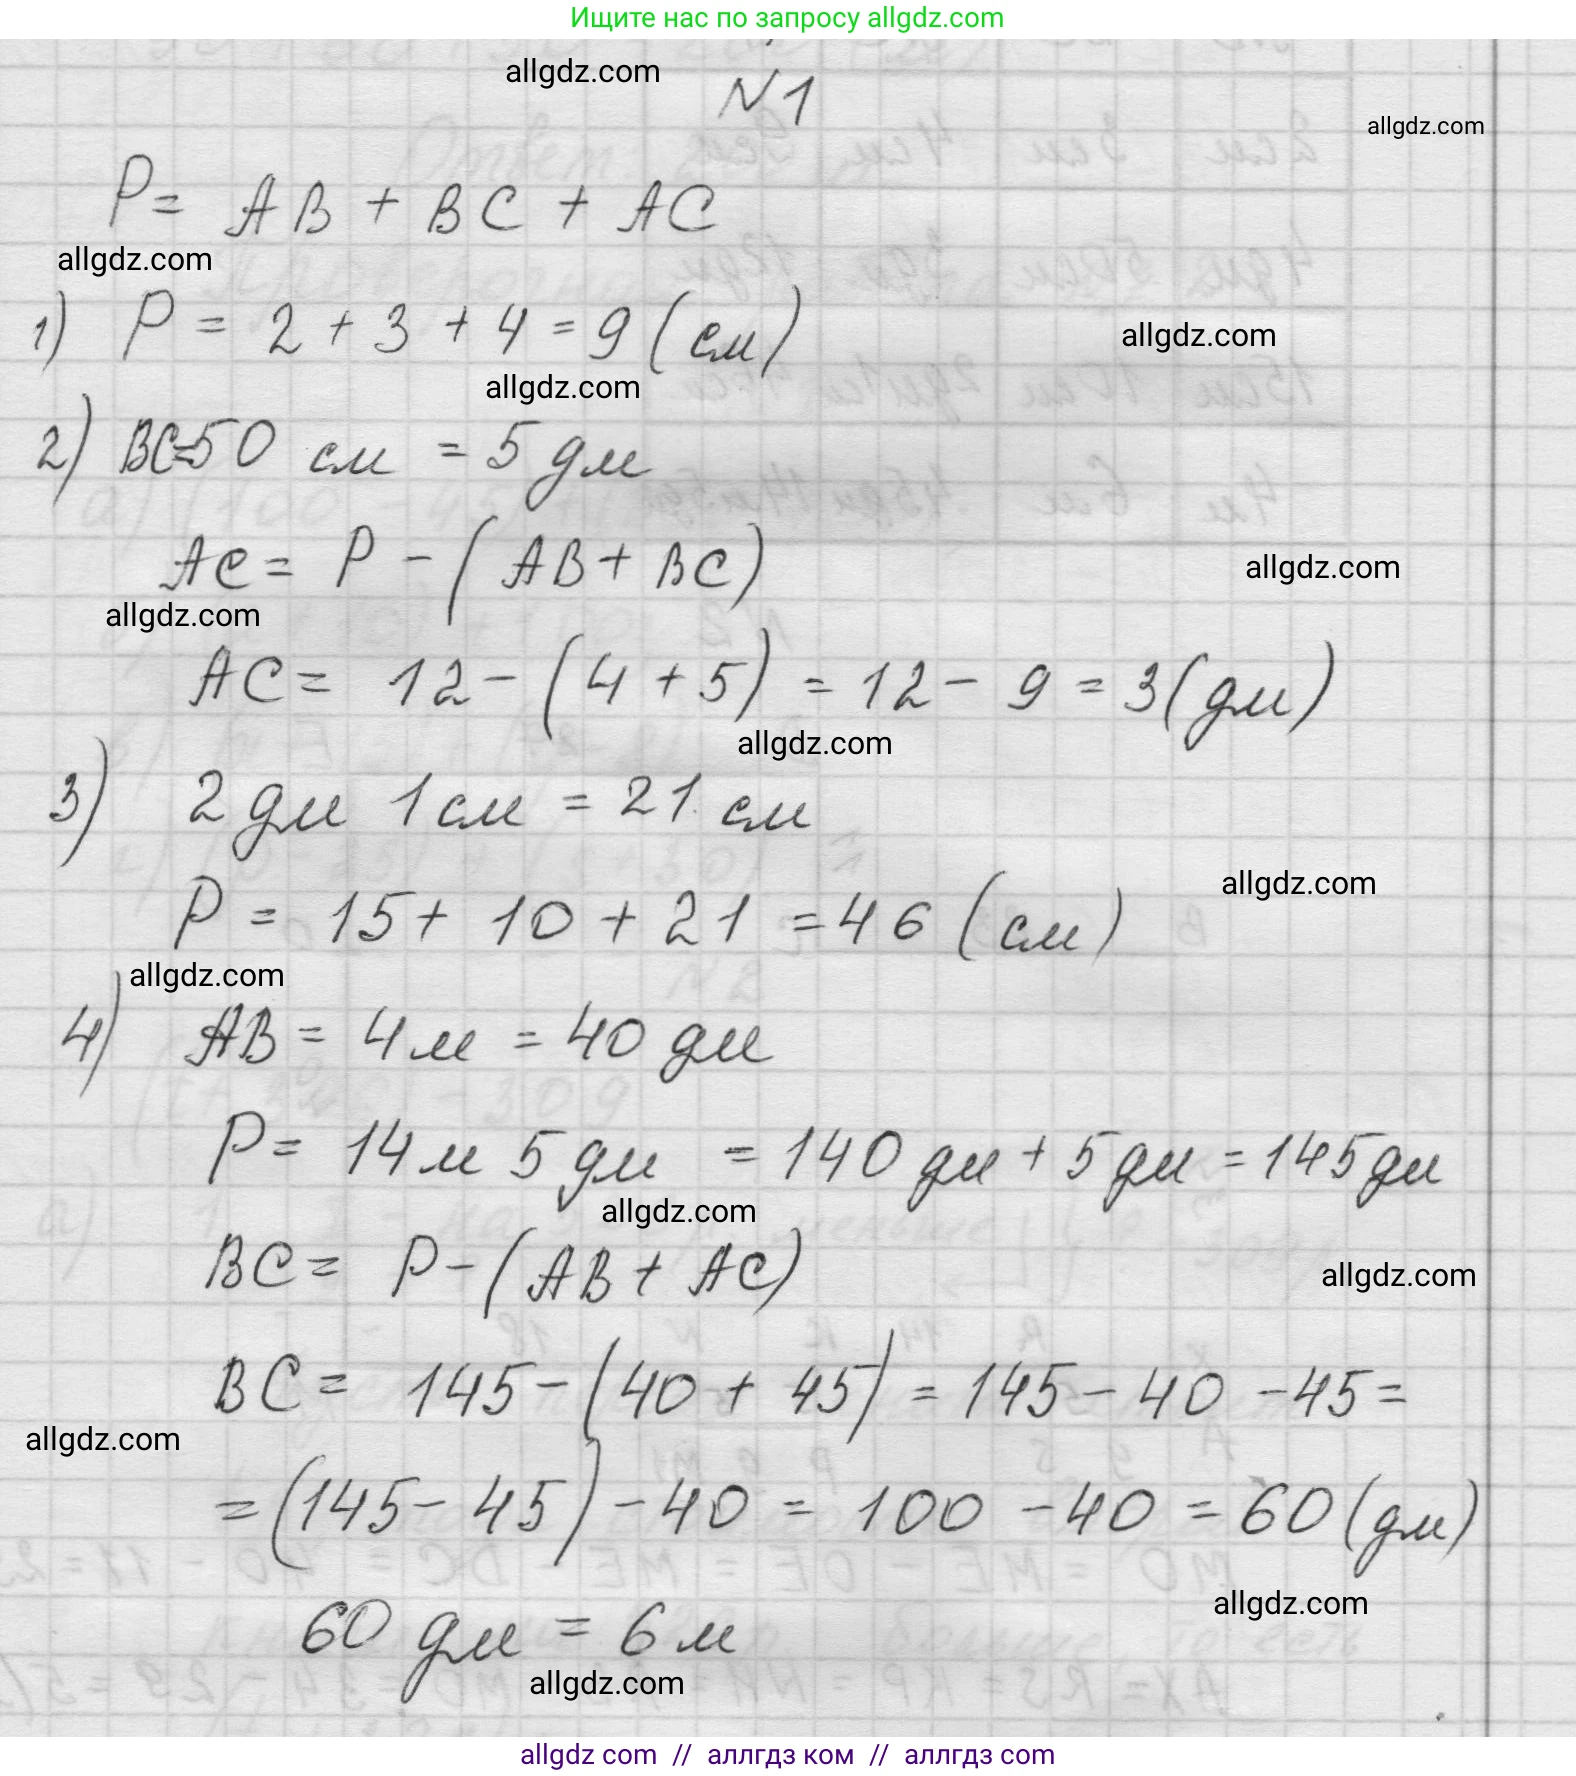 Ищите нас по запросу allgdz.com
allgdz.com
N1
allgdz.com
P = AB + BC + AC
allgdz.com
1) P = 2 + 3 + 4 = 9 (см)
allgdz.com
allgdz.com
2) BC=50 см = 5 дм
AC = P - (AB + BC)
allgdz.com
allgdz.com
AC = 12 - (4 + 5) = 12 - 9 = 3 (дм)
allgdz.com
3) 2 дм 1 см = 21 см
allgdz.com
P = 15 + 10 + 21 = 46 (см)
allgdz.com
4) AB = 4 м = 40 дм
P = 14 м 5 дм = 140 дм + 5 дм = 145 дм
allgdz.com
BC = P - (AB + AC)
allgdz.com
BC = 145 - (40 + 45) = 145 - 40 - 45 =
allgdz.com
= (145 - 45) - 40 = 100 - 40 = 60 (дм)
allgdz.com
60 дм = 6 м
allgdz.com
allgdz com // аллгдз ком // аллгдз com